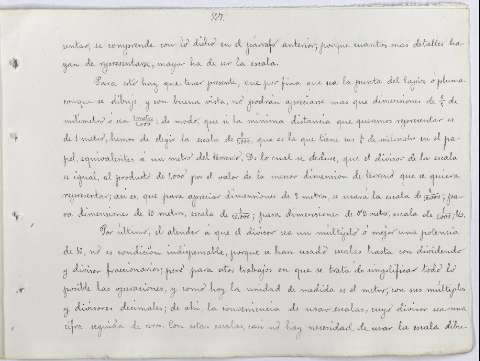 327.
sentar, se comprende con lo dicho en el párrafo anterior; porque cuantos mas detalles ha-
yan de representarse, mayor ha de ser la escala.
Para esto hay que tener presente, que por fina que sea la punta del lapiz o pluma
conque se dibuje, y con buena vista, no podran apreciarse mas que dimensiones de
milímetro ó sea de modo, que si la mínima distancia que queramos representar es
de 1 metro, hemos de elegir la escala de que es la que tiene en el pa-
pel, equivalentes á un metro del terreno. De lo cual se deduce, que el divisor de la escala
es igual, al producto de por el valor de la menor dimension de terreno que se quiera
representar; asi es, que para apreciar dimensiones de 2 metros, se usará la escala de pa-
ra dimensiones de 10 metros, escala de para dimensiones de metro, escala de
Por último, el atender á que el divisor sea un multiplo ó mejor una potencia
de 10, no es condición indispensable, porque se han usado escalas hasta con dividendo
y divisor fraccionarios; pero para estos trabajos en que se trata de simplificar todo lo
posible las operaciones, y como hoy la unidad de medida es el metro, con sus multiplos
y divisores decimales; de ahi la conveniencia de usar escalas, cuyo divisor sea una
cifra seguida de ceros. Con estas escalas, no hay necesidad de usar la escala dibu-